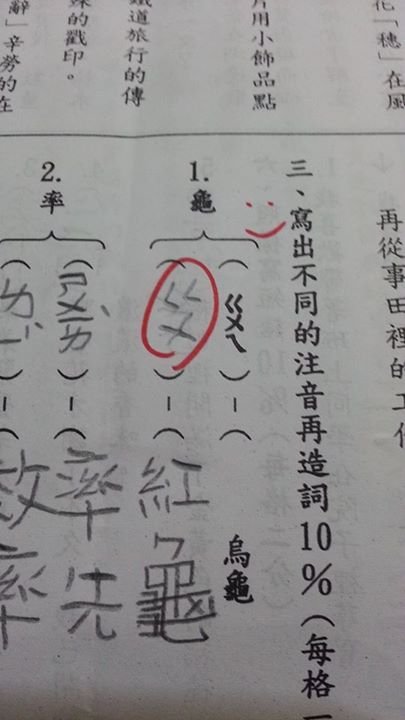 「穗」在風
片用小飾品點
鐵道旅行的傳
殊的戳印。
辭」辛勞的在
再從事田裡的工作
三、寫出不同的注音再造詞10%(每格一
1.龜
(ㄍㄨㄟ)-(烏龜
(ㄍㄨ)-(紅龜
2.率
(ㄕㄨㄞˋ)-(率先
(ㄌˋ)-(效率